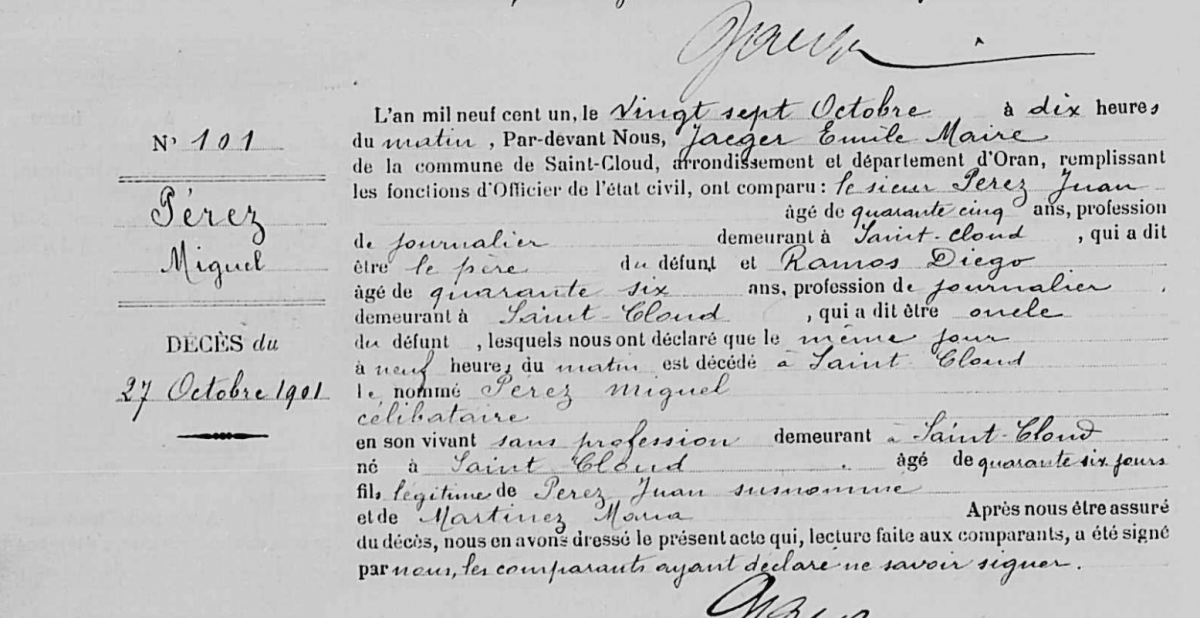 N° 101
Pérez
Miguel
DÉCÈS du
27 Octobre 1901
L'an mil neuf cent un, le Vingt sept Octobre à dix heures
du matin, Par-devant Nous, Jaeger Emile Maire
de la commune de Saint-Cloud, arrondissement et département d'Oran, remplissant
les fonctions d'Officier de l'état civil, ont comparu : le sieur Perez Juan
âgé de quarante cinq ans, profession
de journalier demeurant à Saint-Cloud, qui a dit
être le père du défunt et Ramos Diego
âgé de quarante six ans, profession de journalier
demeurant à Saint-Cloud, qui a dit être oncle
du défunt, lesquels nous ont déclaré que le même jour
à neuf heures du matin est décédé à Saint Cloud
le nommé Pérez Miguel
célibataire
en son vivant sans profession demeurant à Saint-Cloud
né à Saint Cloud. âgé de quarante six jours
fils légitime de Perez Juan susnommé
et de Martinez Maria Après nous être assuré
du décès, nous en avons dressé le présent acte qui, lecture faite aux comparants, a été signé
par nous, les comparants ayant déclaré ne savoir signer.